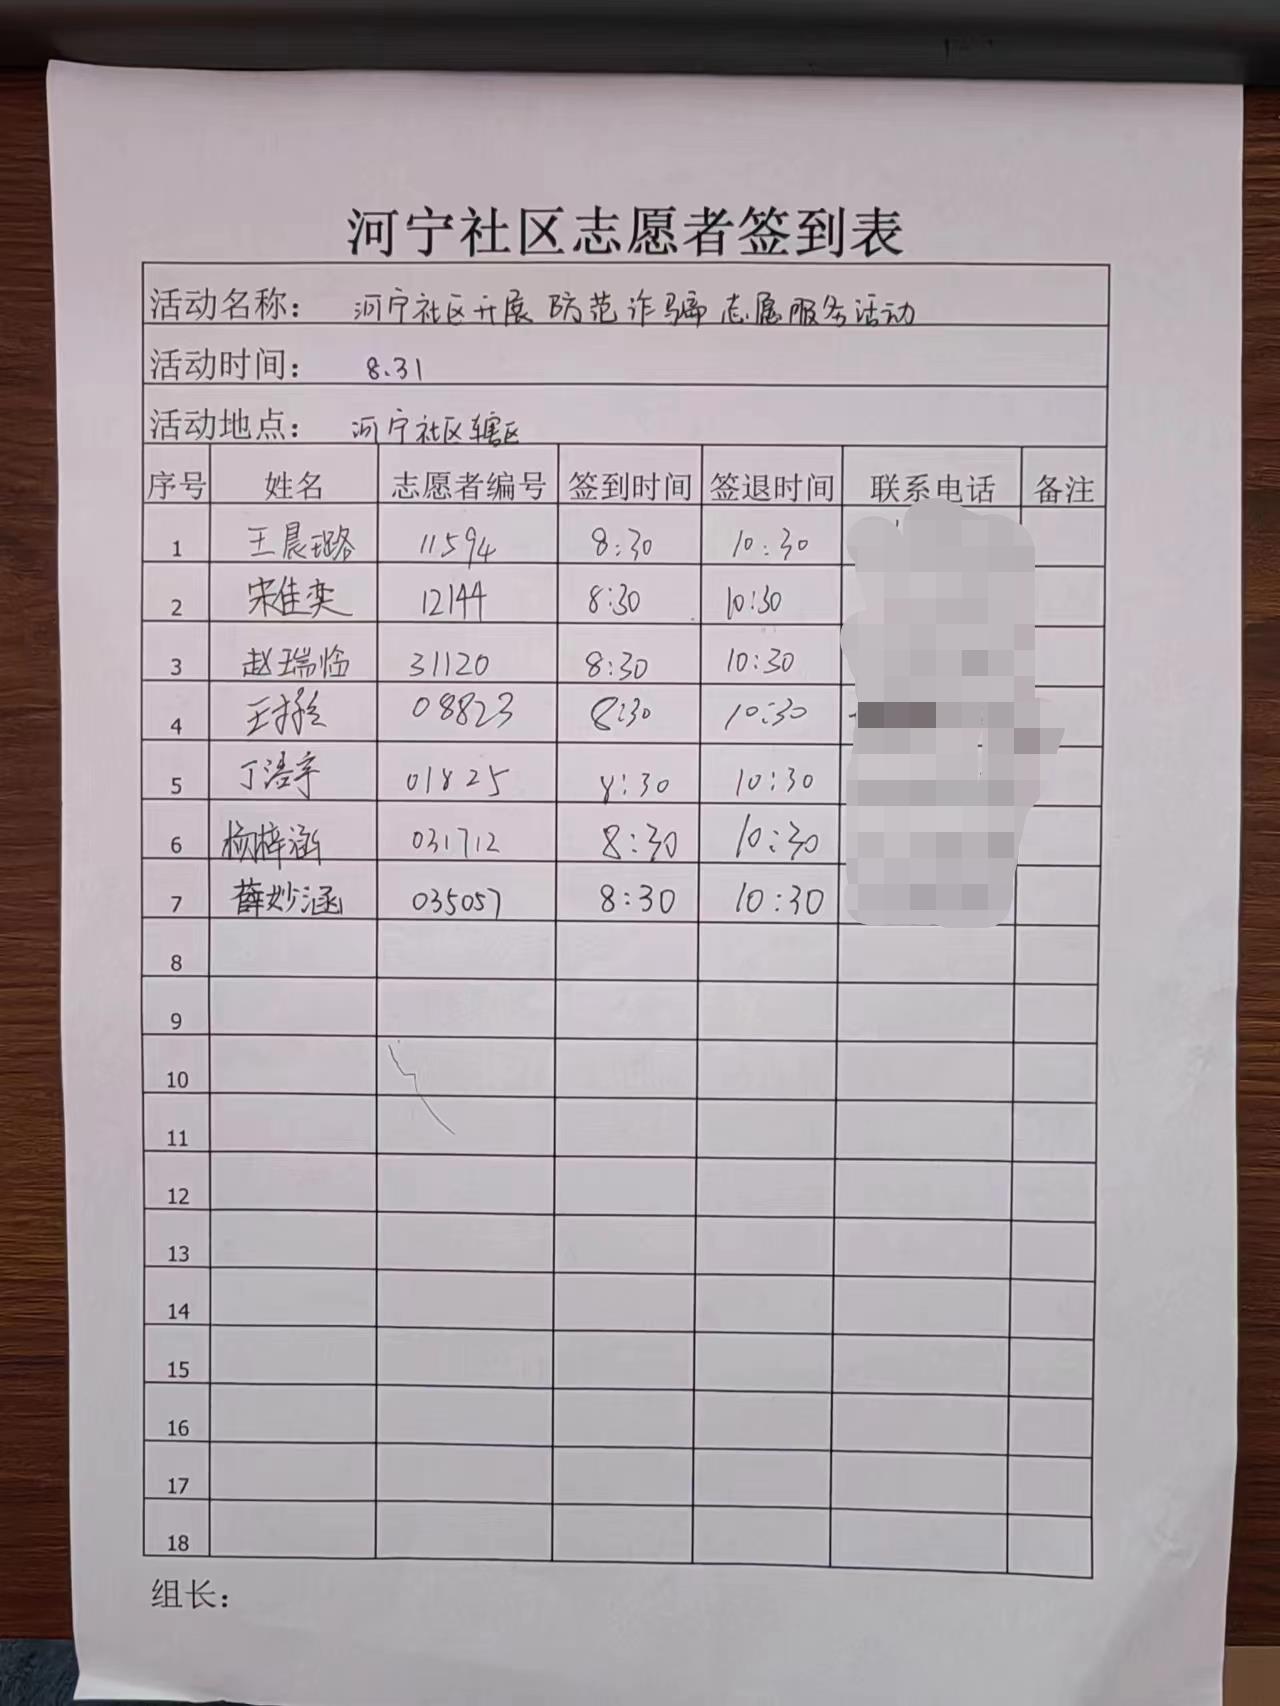 河宁社区志愿者签到表
活动名称： 河宁社区开展防范诈骗志愿服务活动
活动时间： 8.31
活动地点： 河宁社区辖区
序号 姓名 志愿者编号 签到时间 签退时间 联系电话 备注
1 王晨璐 11594 8:30 10:30
2 宋佳奕 12144 8:30 10:30
3 赵瑞临 31120 8:30 10:30
4 08823 8:30 10:30
5 丁浩宇 01825 8:30 10:30
6 杨梓涵 031712 8:30 10:30
7 薛妙涵 035057 8:30 10:30
8
9
10
11
12
13
14
15
16
17
18
组长：